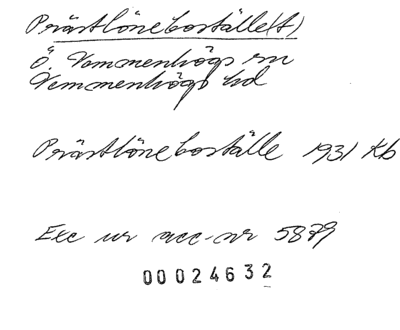 Prästlöneboställe(t)
Ö. Vemmenhögs sn
Vemmenhögs hd
Prästlöneboställe 1931 Kb
Exc ur acc-nr 5879
00024632